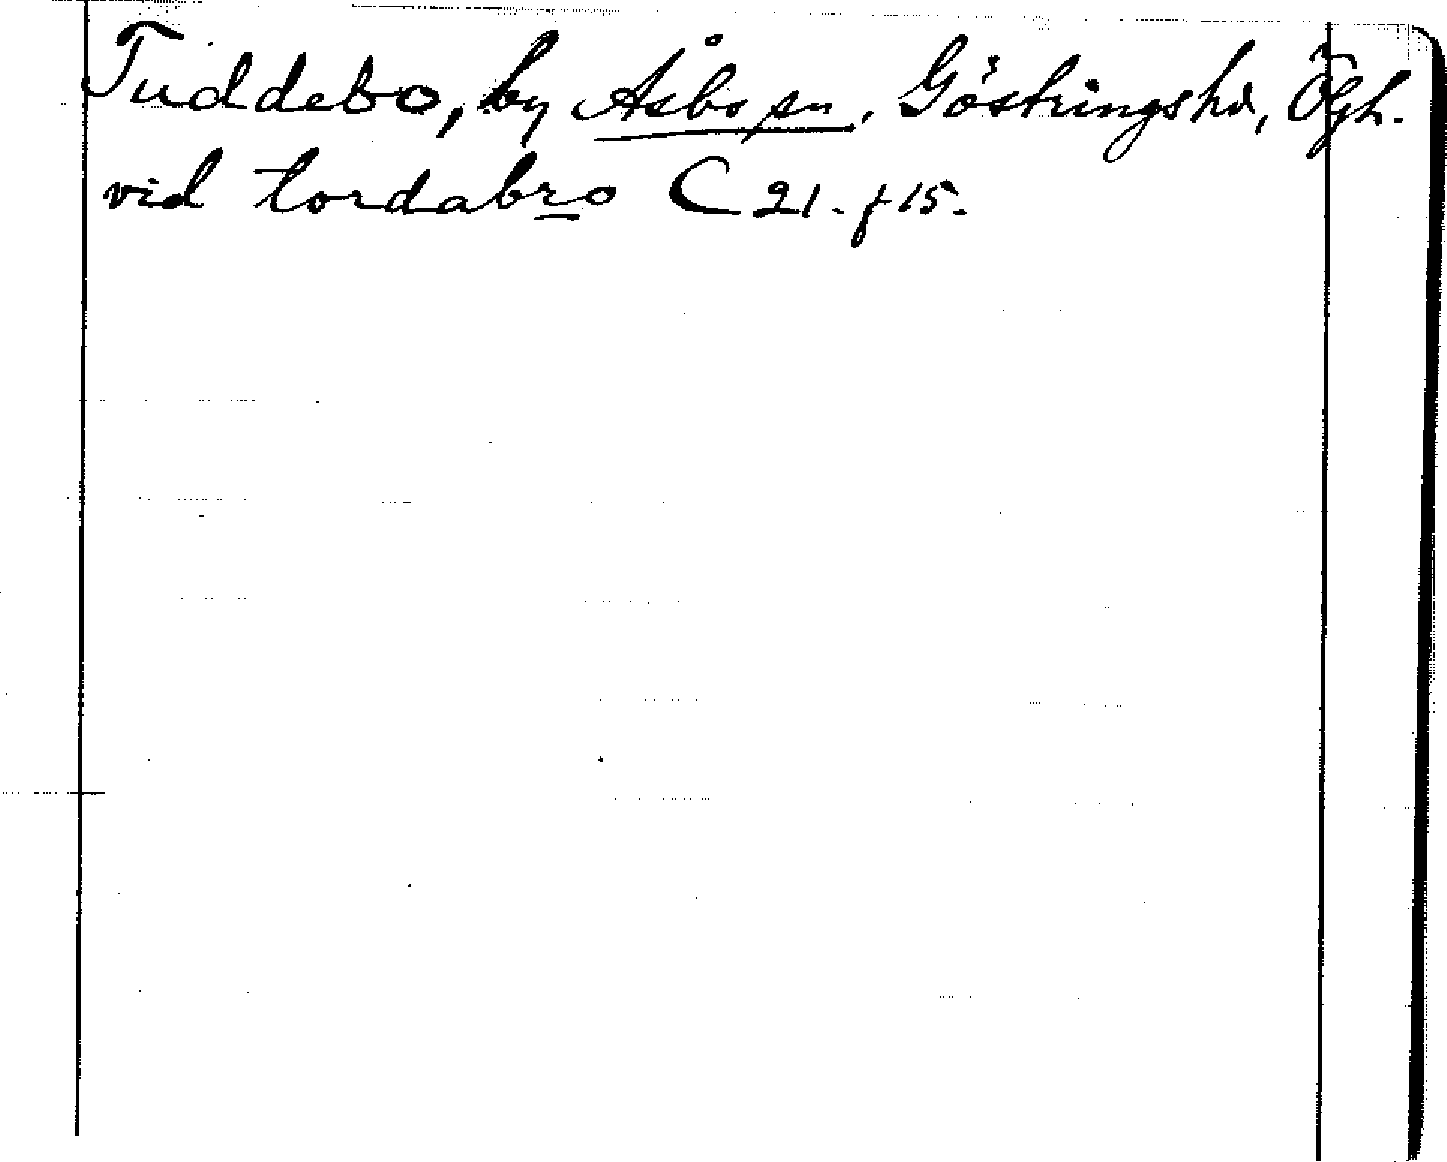 Tuddebo, by Åsbo sn. Göstringshd, Ögh.
vid tordabro C 21. f 15.